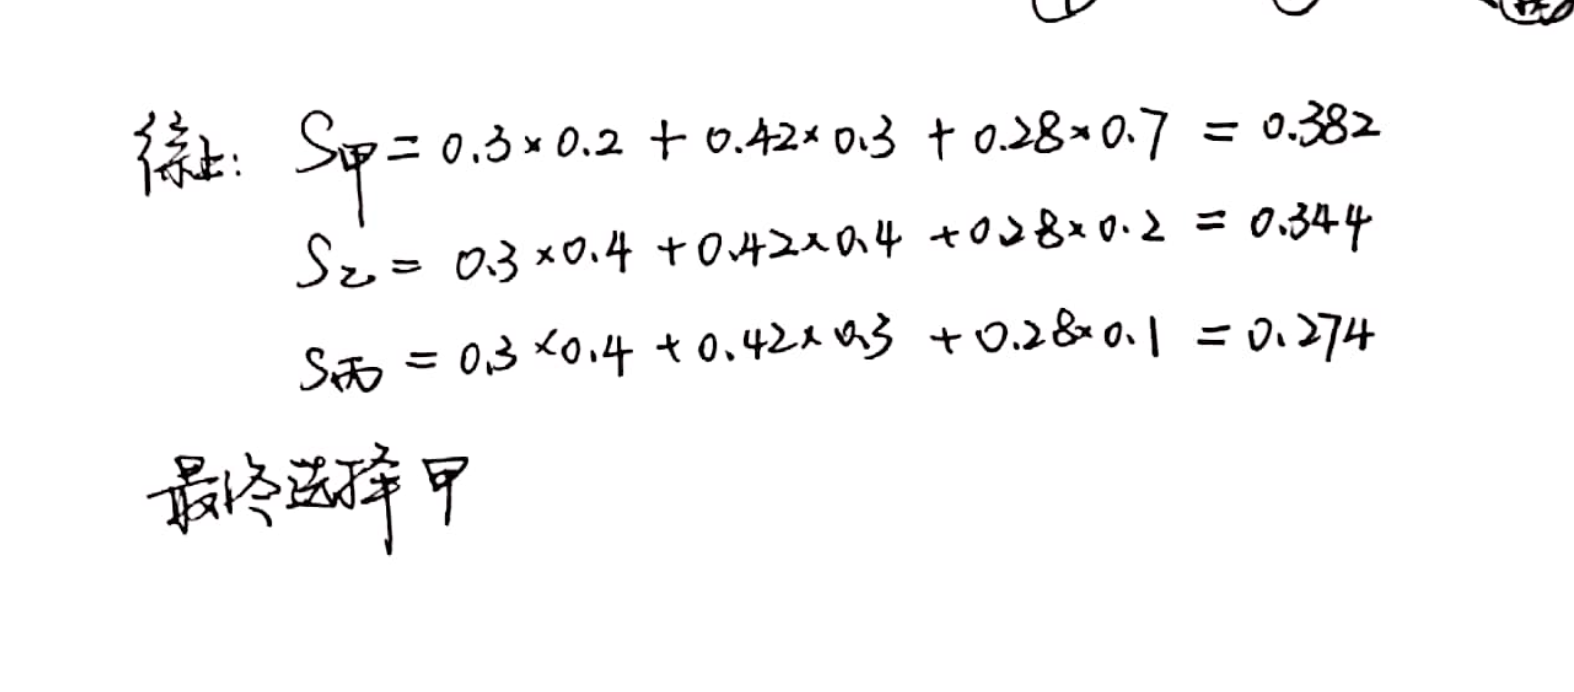 综上: S甲 = 0.3×0.2 + 0.42×0.3 + 0.28×0.7 = 0.382
S乙 = 0.3×0.4 + 0.42×0.4 + 0.28×0.2 = 0.344
S丙 = 0.3×0.4 + 0.42×0.3 + 0.28×0.1 = 0.274
最终选择甲